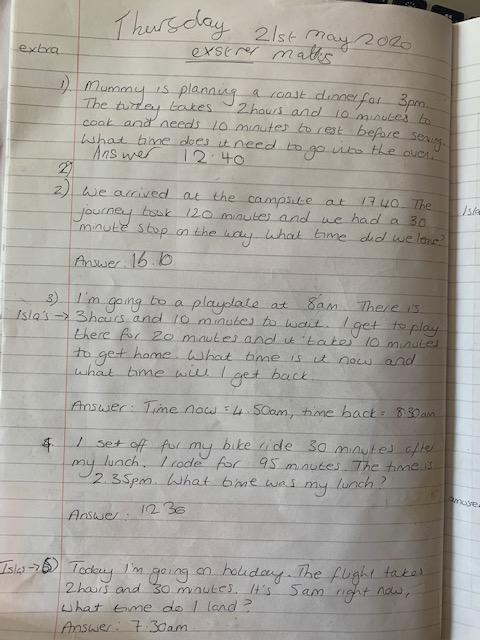 Thursday 21st may 2020
extra
exstrer maths
1) Mummy is planning a roast dinner for 3pm.
The turkey takes 2hours and 10 minutes to
cook and needs 10 minutes to rest before serving.
What time does it need to go into the oven.
Answer 12.40
2)
2) We arrived at the campsite at 17.40. The
journey took 120 minutes and we had a 30
minute stop on the way. What time did we leave?
Answer: 16.10
3) I'm going to a playdate at 8am. There is
Isla's → 3hours and 10 minutes to wait. I get to play
there for 20 minutes and it takes 10 minutes
to get home. What time is it now and
what time will I get back.
Answer: Time now = 4.50am, time back = 8.30am
4. I set off for my bike ride 30 minutes after
my lunch. I rode for 95 minutes. The time is
2.35pm. What time was my lunch?
Answer: 12 30
Isla's → 5) Today I'm going on holiday. The flight takes
2hours and 30 minutes. It's 5am right now,
what time do I land?
Answer: 7.30am